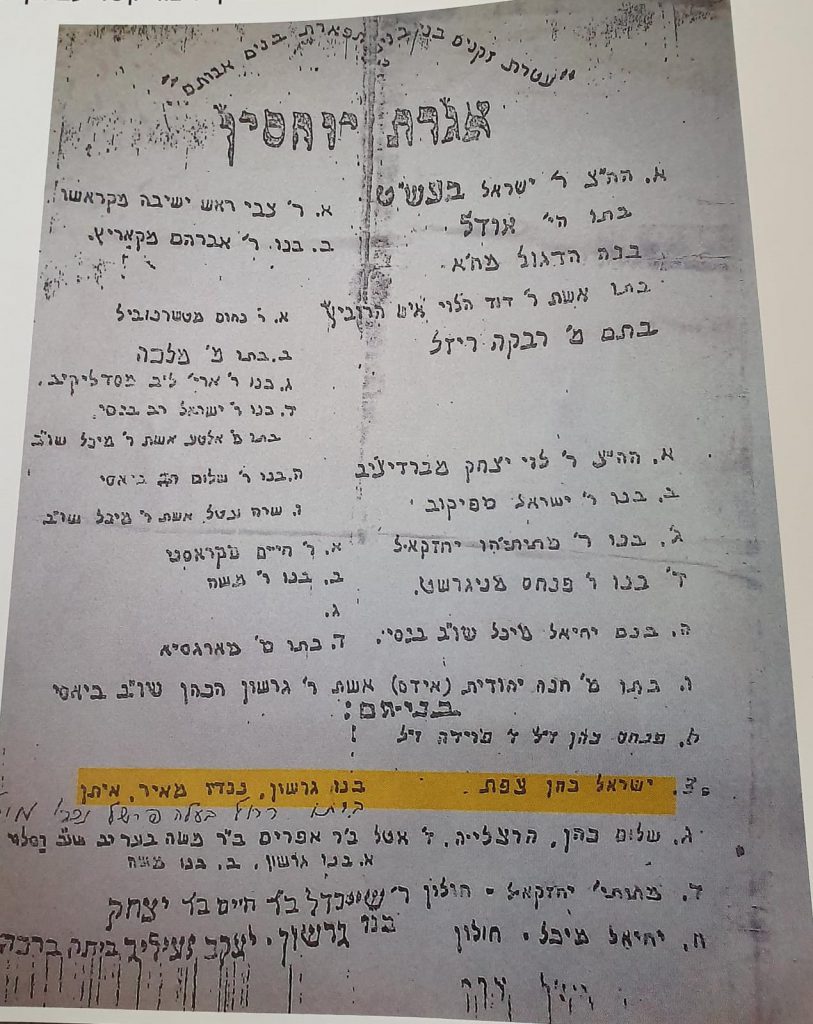 "עטרת זקנים בני בנים ותפארת בנים אבותם"
אגרת יוחסין
א. הה"צ ר' ישראל בעש"ט
בתו הי' אודל
בנה הדגול מח"א
בתו אשת ר' דוד הלוי איש הרוביץ
בתם מ' רבקה ריזל
א. ר' צבי ראש ישיבה מקראשו.
ב. בנו ר' אברהם מקאריץ.
א. ר' נחום מטשרנוביל
ב. בתו מ' מלכה
ג. בנו ר' ארי' ליב מסדליקיב.
ד. בנו ר' ישראל רב בנסי.
בתו מ' אלטע אשת ר' מיכל שו"ב
ה. בנו ר' שלום רב ביאסי
ו. שרה נעטל אשת ר' מיכל שו"ב
א. הה"צ ר' לוי יצחק מברדיציב
ב. בנו ר' ישראל מפיקוב
ג. בנו ר' מתיתיהו יחזקאל
ד' בנו ר' פנחס מניגרשט.
ה. בנם יחיאל מיכל שו"ב בנסי.
א. ר' חיים מקראסט
ב. בנו ר' משה
ג.
ד. בתו מ' מארגסיא
ו. בתו מ' חנה יהודית (אידס) אשת ר' גרשון הכהן שו"ב ביאסי
בניהם:
א. פנחס כהן ז"ל ד' פרידה ז"ל
ב. ישראל כהן צפת בנו גרשון, נכדו מאיר, איתן
ביתו רחל בעלה
ג. שלום כהן, הרצלייה. ז' אטל ב"ר אפרים ב"ר משה
א. בנו גרשון, ב. בנו משה
ד. מתיתי' יחזקאל - חולון ר' שיינדל בר חיים בר יצחק
ח. יחיאל מיכל - חולון בנו גרשון - יעקב ביתה ברכה